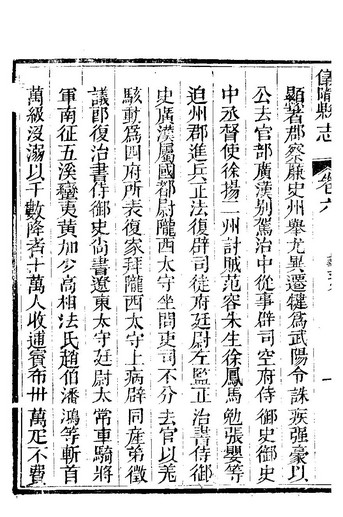 儀隴縣志 卷六 藝文 一
顯著郡察廉史州舉尤異遷犍爲武陽令誅疾强豪以
公去官部廣漢别駕治中從事辟司空府侍御史御史
中丞督使徐揚二州討賊范容朱生徐鳳馬勉張嬰等
迫州郡進兵正法復辟司徒府廷尉左監正治書侍御
史廣漢屬國都尉隴西太守坐問吏司不分去官以羌
駭動爲四府所表復家拜隴西太守上病辟同産弟徵
議郎復治書侍御史尚書遼東太守廷尉太常車騎將
軍南征五溪蠻夷黃加少高相法氏趙伯潘鴻等斬首
萬級没溺以千數降者十萬人收逋賨布卅萬疋不費